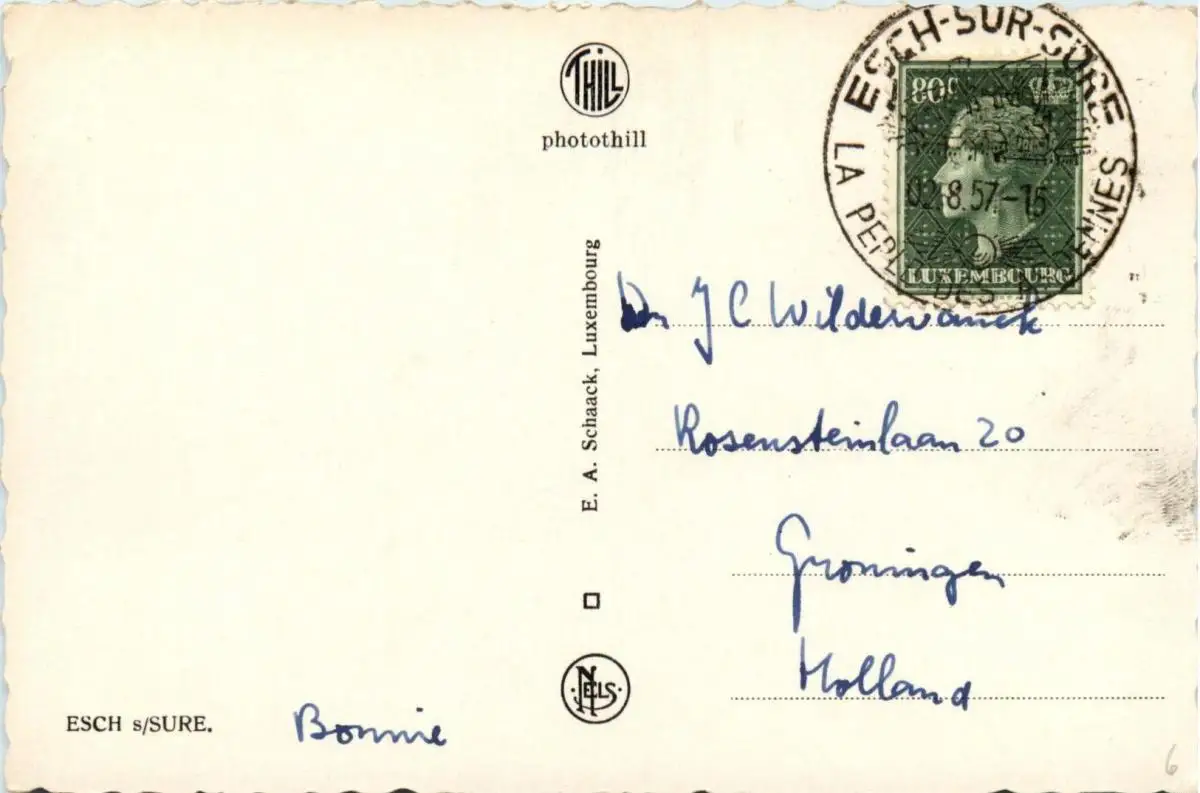 THILL
photothill
ESCH-SUR-SÛRE
LA PERLE DES ARDENNES
02.8.57-15
80c
LUXEMBOURG
E. A. Schaack, Luxembourg
NELS
Dr J C Wildervanck
Rosensteinlaan 20
Groningen
Holland
ESCH s/SURE.
Bonnie
6